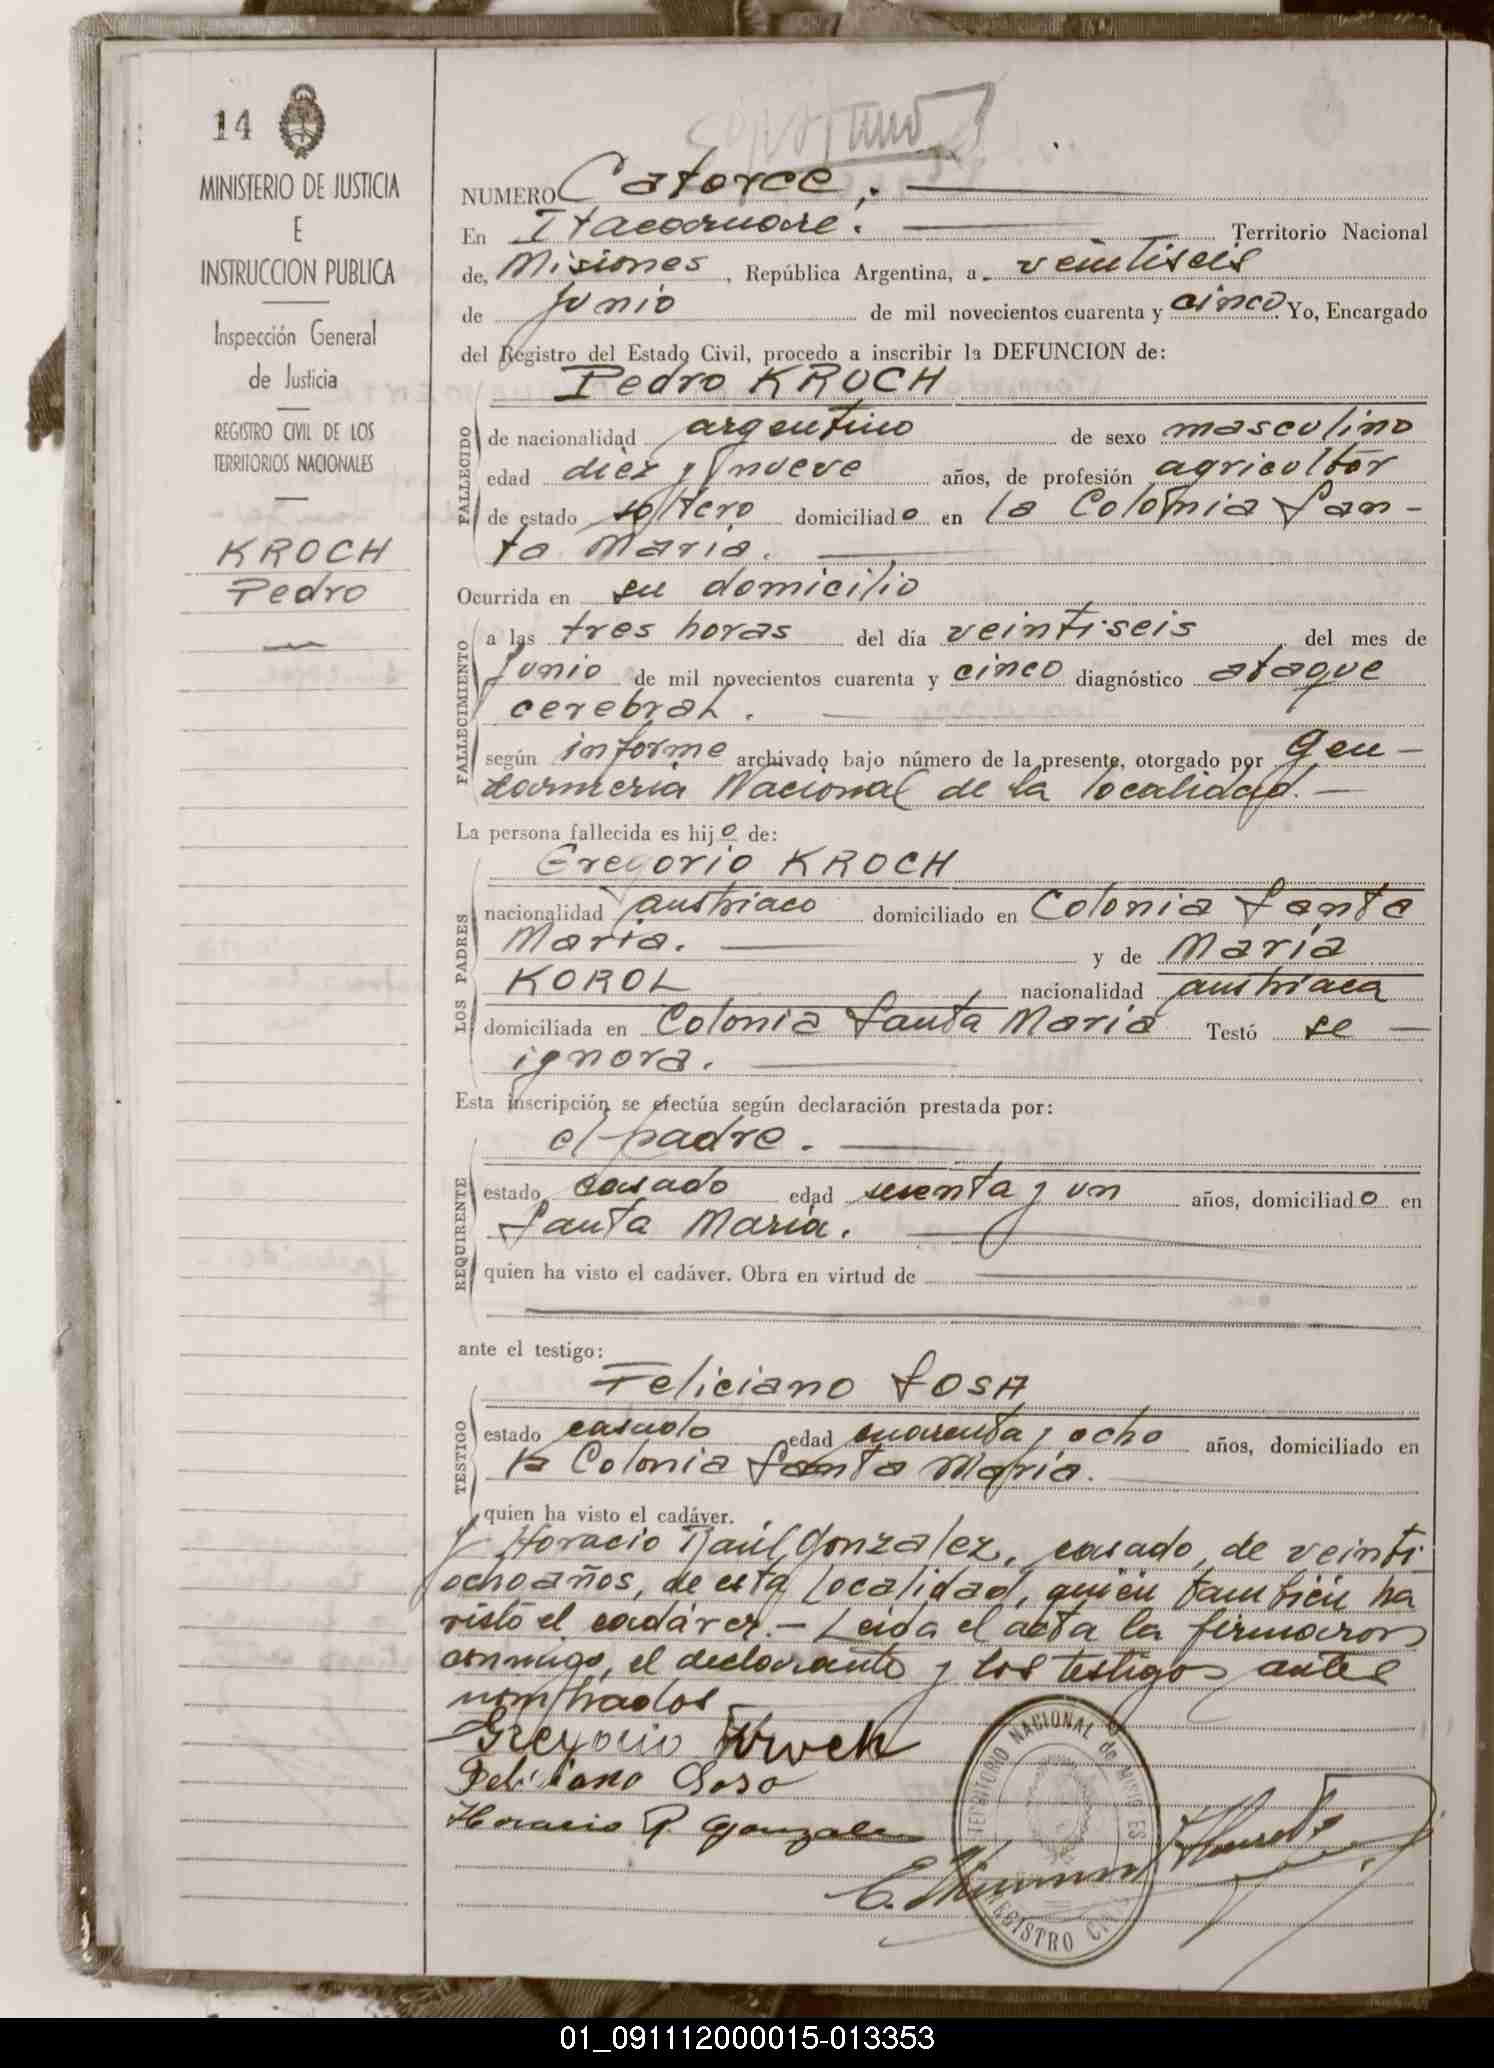 14
MINISTERIO DE JUSTICIA
E
INSTRUCCION PUBLICA
Inspección General
de Justicia
REGISTRO CIVIL DE LOS
TERRITORIOS NACIONALES
KROCH
Pedro
NUMERO Catorce.
En Itacaruare. Territorio Nacional
de, Misiones, República Argentina, a veintiseis
de Junio de mil novecientos cuarenta y cinco. Yo, Encargado
del Registro del Estado Civil, procedo a inscribir la DEFUNCION de:
Pedro KROCH
FALLECIDO
de nacionalidad argentino de sexo masculino
edad diez y nueve años, de profesión agricultor
de estado soltero domiciliado en la Colonia San-
ta Maria.
Ocurrida en su domicilio
FALLECIMIENTO
a las tres horas del día veintiseis del mes de
Junio de mil novecientos cuarenta y cinco diagnóstico ataque
cerebral.
según informe archivado bajo número de la presente, otorgado por Gen-
darmeria Nacional de la localidad.-
La persona fallecida es hijo de:
LOS PADRES
Gregorio KROCH
nacionalidad austriaco domiciliado en Colonia Santa
Maria. y de Maria
KOROL nacionalidad austriaca
domiciliada en Colonia Santa Maria Testó se
ignora.
Esta inscripción se efectúa según declaración prestada por:
REQUIRENTE
el padre.
estado casado edad sesenta y un años, domiciliado en
Santa Maria.
quien ha visto el cadáver. Obra en virtud de
ante el testigo:
TESTIGO
Feliciano SOSA
estado casado edad cuarenta y ocho años, domiciliado en
la Colonia Santa Maria.
quien ha visto el cadáver.
y Horacio Raúl Gonzalez, casado, de veinti
ocho años, de esta localidad, quien tambien ha
visto el cadáver.- Leida el acta la firmaron
conmigo, el declarante y los testigos antes
nombrados
Gregorio Kroch
Feliciano Sosa
Horacio R. Gonzalez
TERRITORIO NACIONAL de MISIONES
REGISTRO CIVIL
01_091112000015-013353